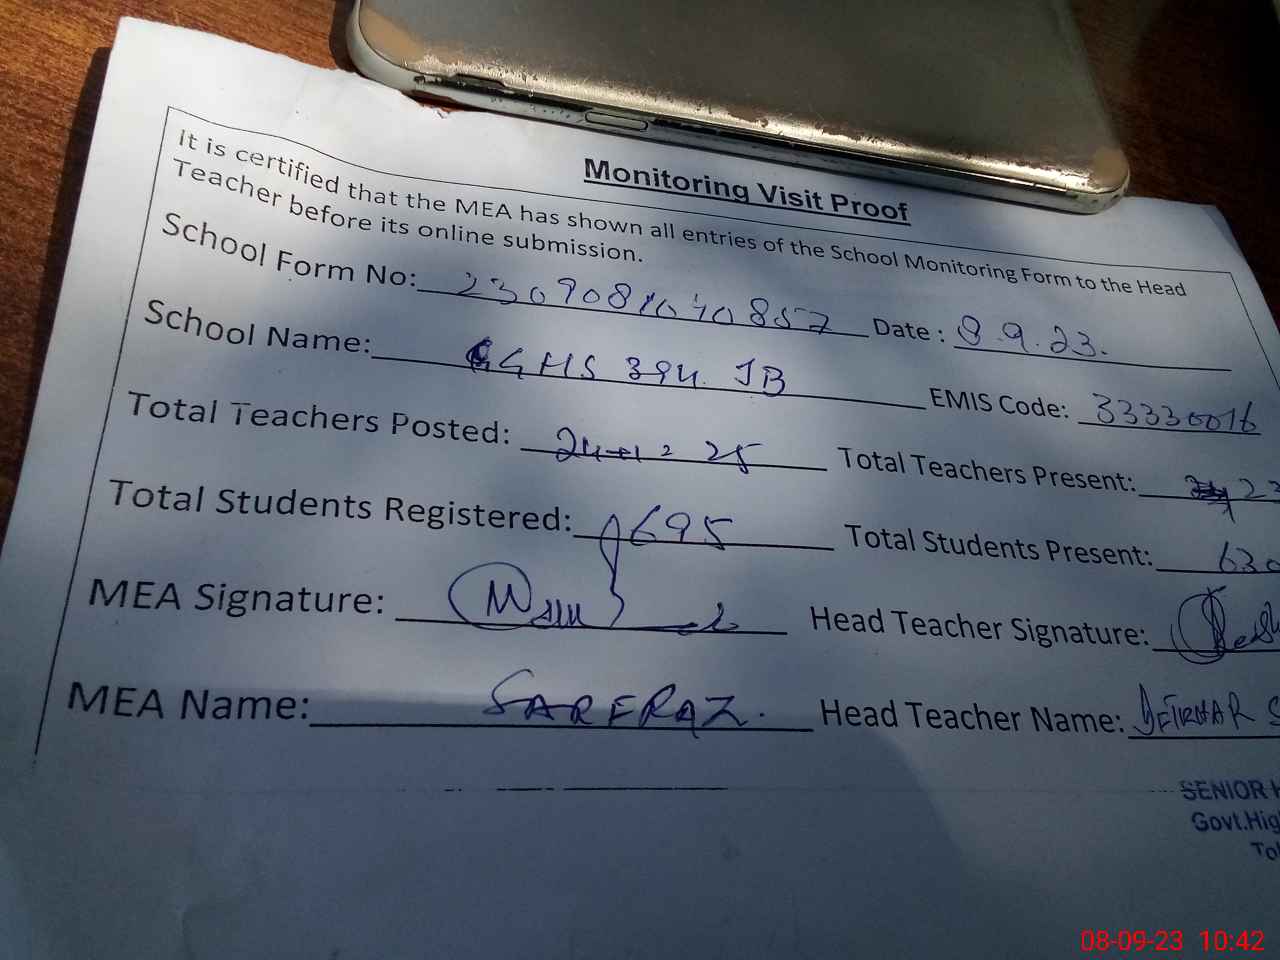 Monitoring Visit Proof
It is certified that the MEA has shown all entries of the School Monitoring Form to the Head
Teacher before its online submission.
School Form No: Date : 8.9.23.
School Name: GGHS 394 JB EMIS Code: 33330016
Total Teachers Posted: 24+1= 25 Total Teachers Present: 23
Total Students Registered: 695 Total Students Present: 630
MEA Signature: Head Teacher Signature:
MEA Name: SARFRAZ. Head Teacher Name:
SENIOR H
Govt.Hig
To
08-09-23 10:42